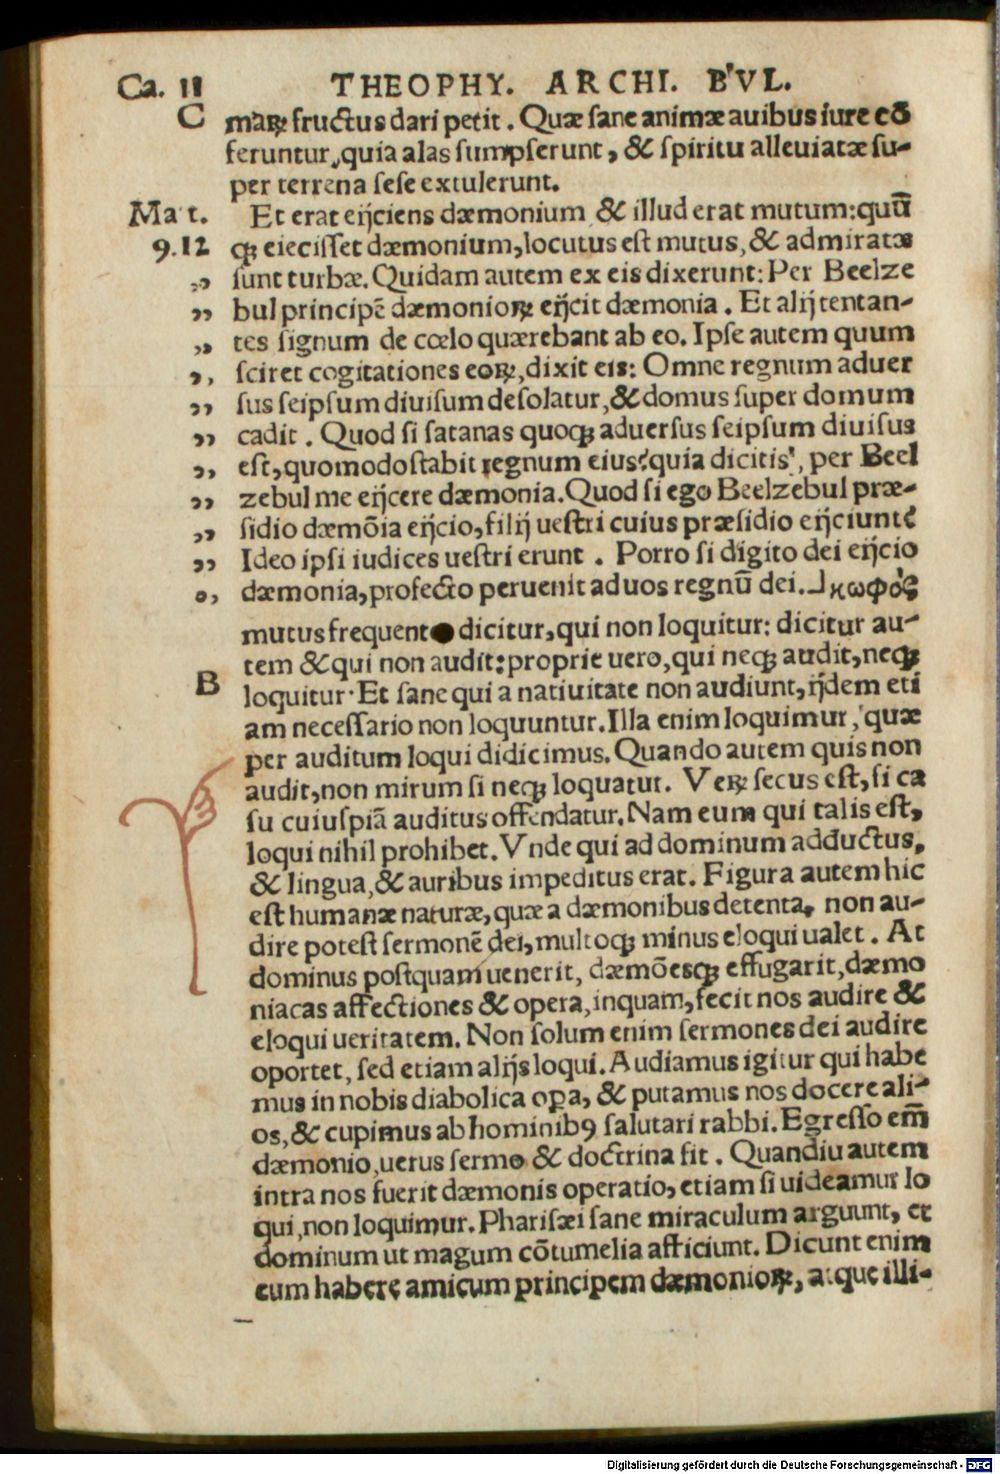 Ca. 11 THEOPHY. ARCHI. BVL.
C maꝝ fructus dari petit. Quæ sane animæ auibus iure cō
feruntur, quia alas sumpserunt, & spiritu alleuiatæ su-
per terrena sese extulerunt.
Mat. Et erat eijciens dæmonium & illud erat mutum: quū
9.12 qꝫ eiecisset dæmonium, locutus est mutus, & admiratæ
,, sunt turbæ. Quidam autem ex eis dixerunt: Per Beelze
,, bul principē dæmonioꝝ eijcit dæmonia. Et alij tentan-
,, tes signum de cœlo quærebant ab eo. Ipse autem quum
,, sciret cogitationes eoꝝ, dixit eis: Omne regnum aduer
,, sus seipsum diuisum desolatur, & domus super domum
,, cadit. Quod si satanas quoqꝫ aduersus seipsum diuisus
,, est, quomodo stabit regnum eius? quia dicitis, per Beel
,, zebul me eijcere dæmonia. Quod si ego Beelzebul præ-
,, sidio dæmōia eijcio, filij uestri cuius præsidio eijciunt?
,, Ideo ipsi iudices uestri erunt. Porro si digito dei eijcio
,, dæmonia, profecto peruenit ad uos regnū dei.⅃ κωφὸς
mutus frequent dicitur, qui non loquitur: dicitur au-
tem & qui non audit: proprie uero, qui neqꝫ audit, neqꝫ
B loquitur. Et sane qui a natiuitate non audiunt, ijdem eti
am necessario non loquuntur. Illa enim loquimur, quæ
per auditum loqui didicimus. Quando autem quis non
audit, non mirum si neqꝫ loquatur. Veꝝ secus est, si ca
su cuiuspiā auditus offendatur. Nam eum qui talis est,
loqui nihil prohibet. Vnde qui ad dominum adductus,
& lingua, & auribus impeditus erat. Figura autem hic
est humanæ naturæ, quæ a dæmonibus detenta, non au-
dire potest sermonē dei, multoqꝫ minus eloqui ualet. At
dominus postquam uenerit, dæmōesqꝫ effugarit, dæmo
niacas affectiones & opera, inquam, fecit nos audire &
eloqui ueritatem. Non solum enim sermones dei audire
oportet, sed etiam alijs loqui. Audiamus igitur qui habe
mus in nobis diabolica oꝑa, & putamus nos docere ali-
os, & cupimus ab hominibꝰ salutari rabbi. Egresso em̄
dæmonio, uerus sermo & doctrina fit. Quandiu autem
intra nos fuerit dæmonis operatio, etiam si uideamur lo
qui, non loquimur. Pharisæi sane miraculum arguunt, et
dominum ut magum cōtumelia afficiunt. Dicunt enim
eum habere amicum principem dæmonioꝝ, atque illi-
Digitalisierung gefördert durch die Deutsche Forschungsgemeinschaft - DFG